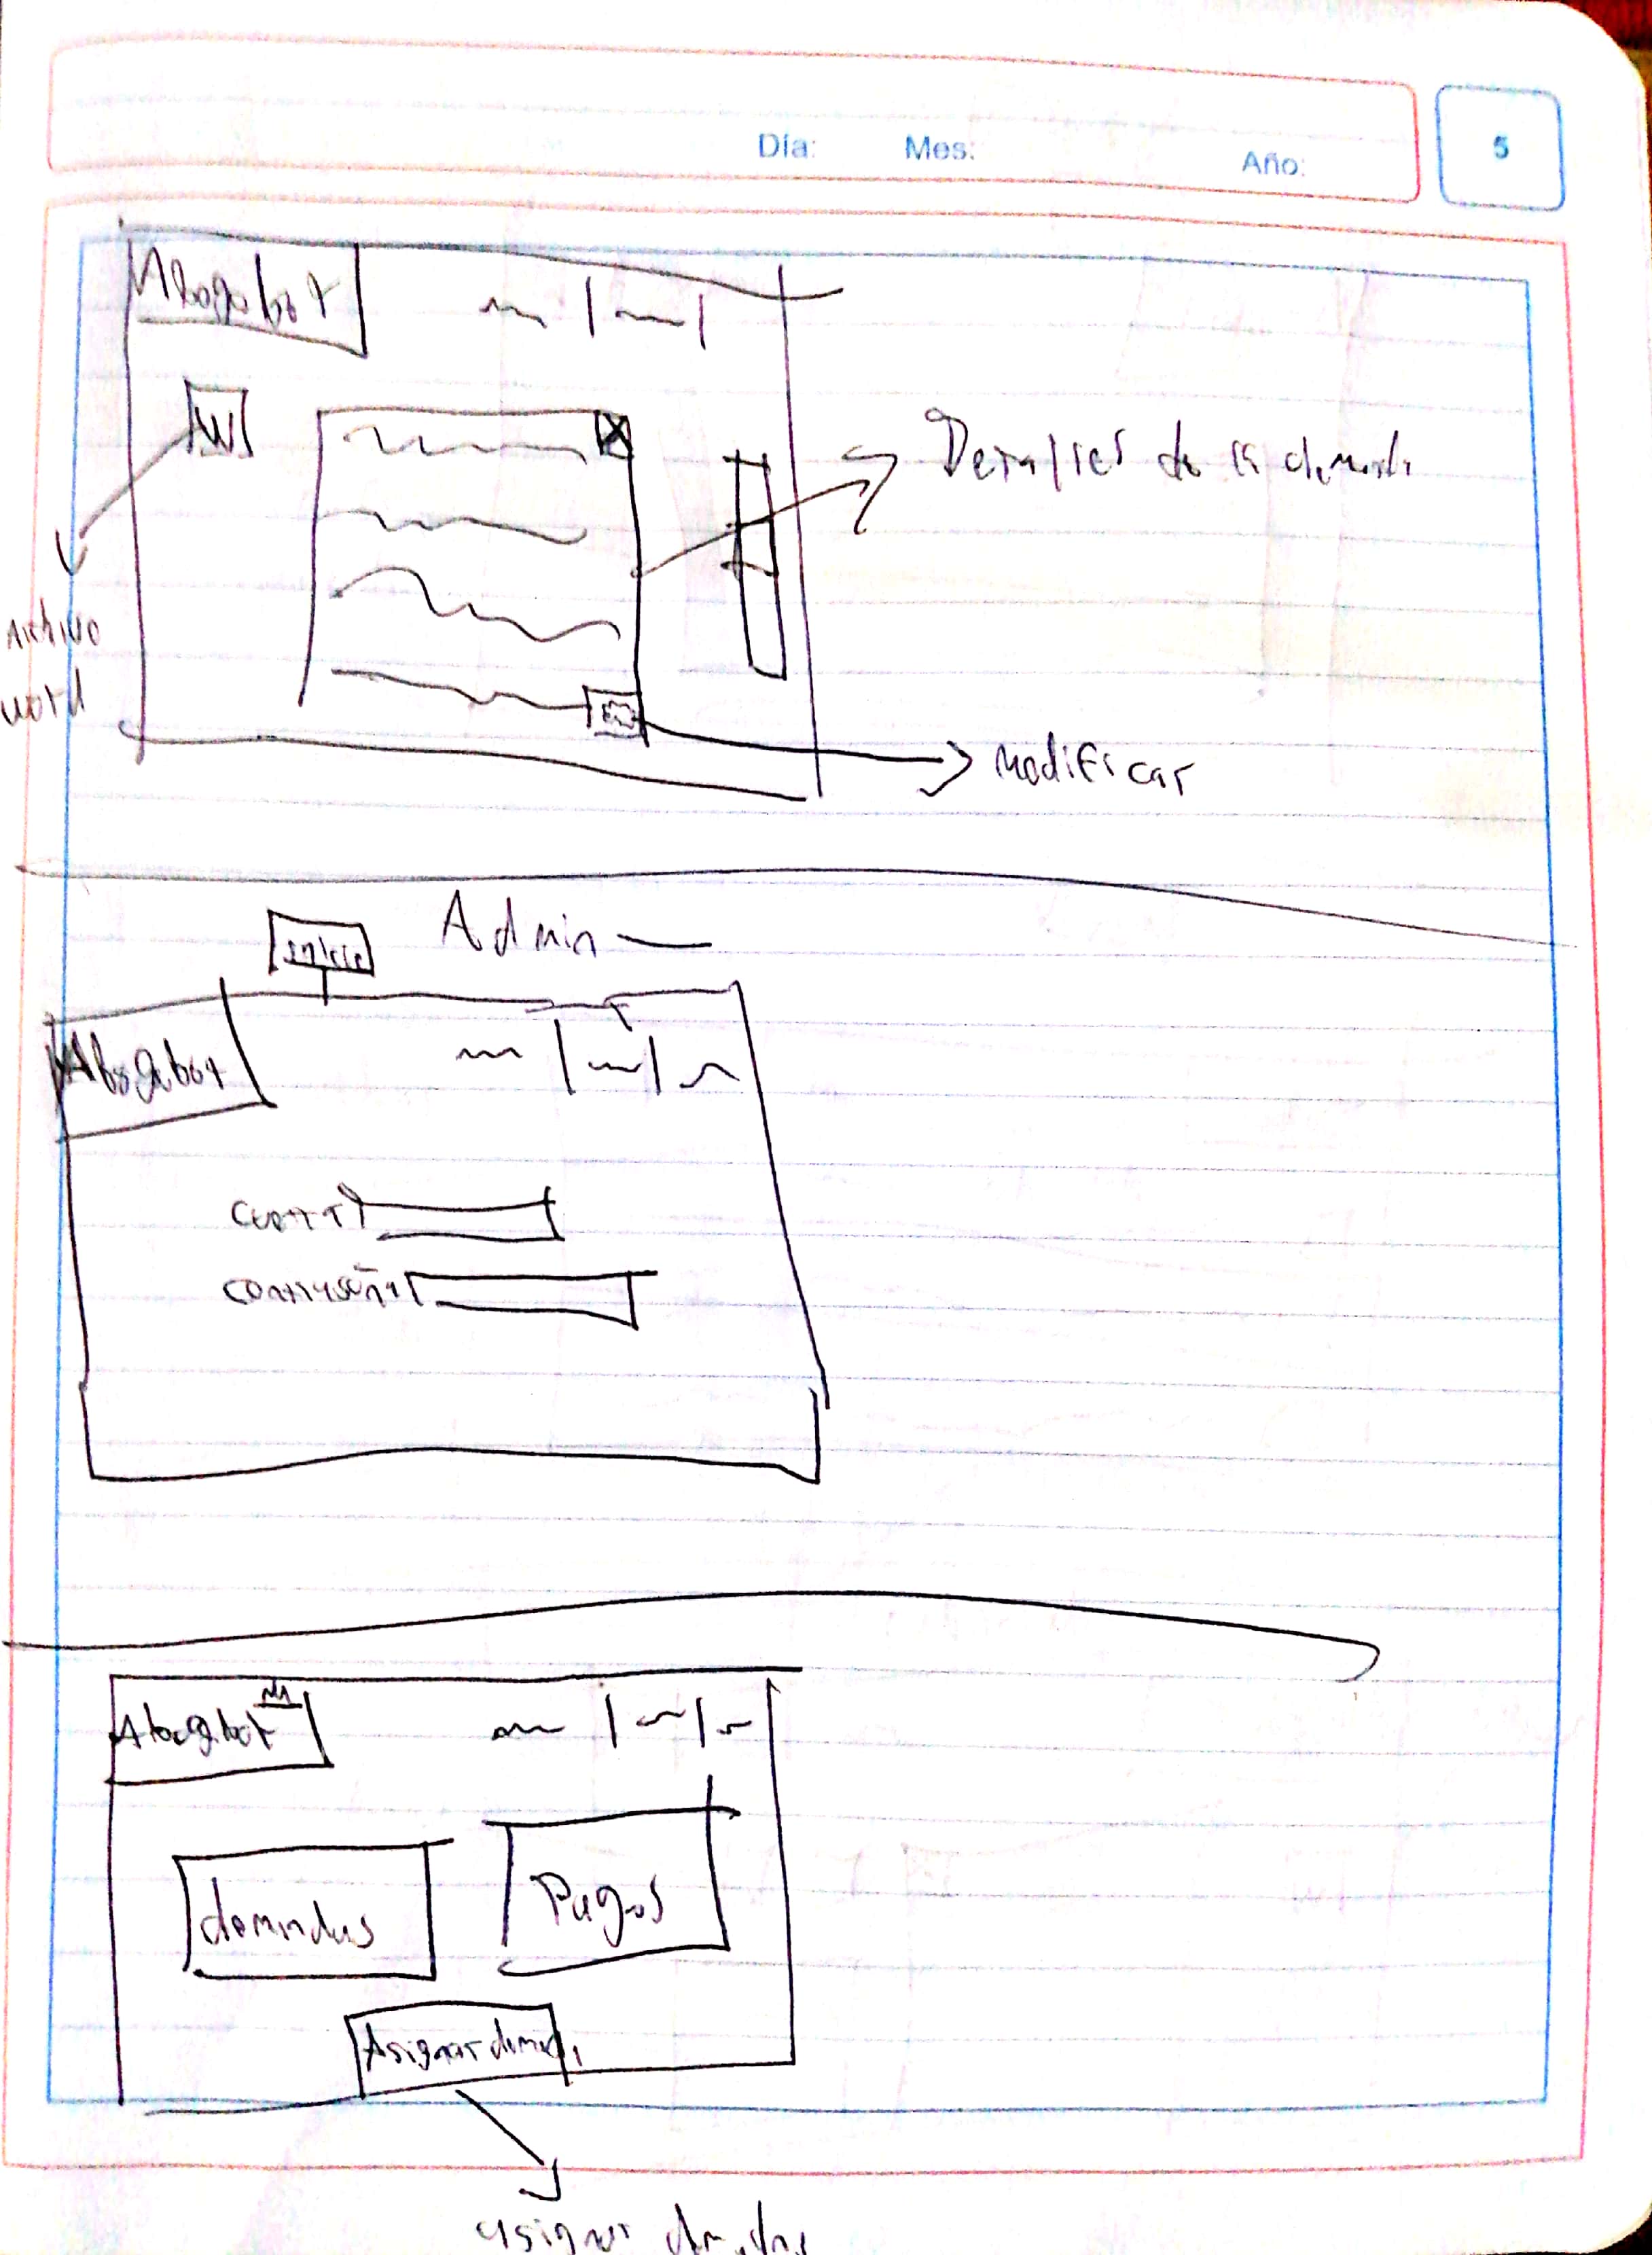 Día: Mes: Año: 5
Abogabot
W
Detalles de la demanda
Archivo
word
modificar
Admin
inicio
Abogabot
correo
contraseña
Abogabot
demandas
Pagos
Asignar demanda
asignar